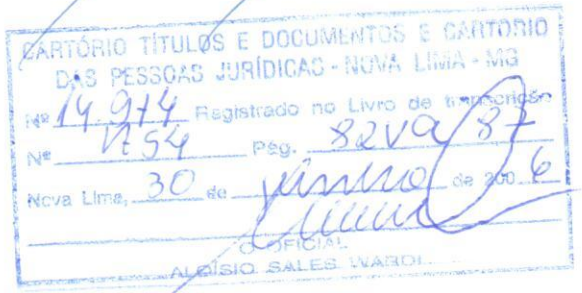 CARTÓRIO TÍTULOS E DOCUMENTOS E CARTORIO
DAS PESSOAS JURÍDICAS - NOVA LIMA - MG
Nº 14.974 Registrado no Livro de transcrição
Nº 54 Pág. 82Va 87
Nova Lima, 30 de de 200 6
O OFICIAL
ALOÍSIO SALES WARDI